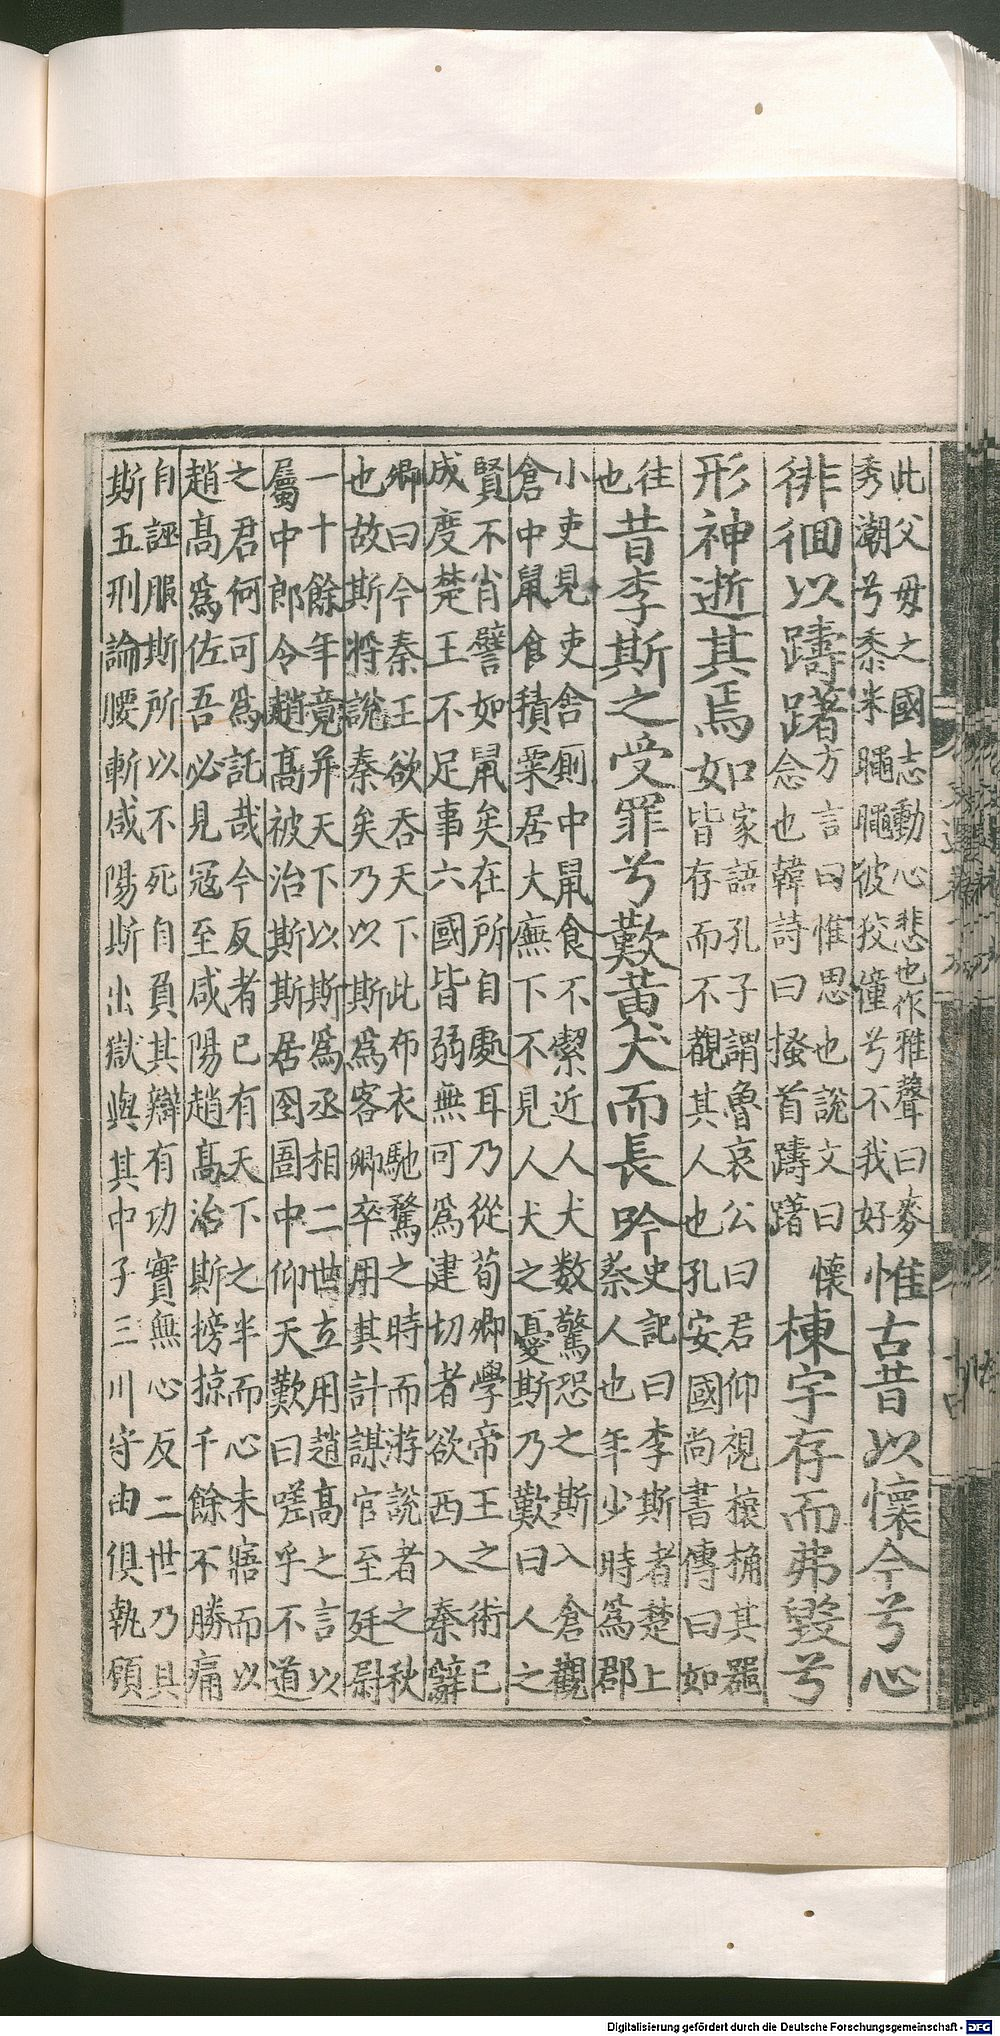 此父毋之國志動心悲也作雅聲曰麥
秀漸兮黍米䵷䵷彼狡僮兮不我好
惟古昔以懷今兮心
徘徊以躊躇
方言曰惟思也說文曰懷
念也韓詩曰搔首躊躇
棟宇存而弗毀兮
形神逝其焉如
家語孔子謂魯哀公曰君仰視榱桷其噐
皆存而不覩其人也孔安國尚書傳曰如
往
也
昔李斯之受罪兮歎黄犬而長吟
史記曰李斯者楚上
蔡人也年少時爲郡
小吏見吏舎厠中鼠食不潔近人犬数驚恐之斯入倉觀
倉中鼠食積粟居大廡下不見人犬之憂斯乃歎曰人之
賢不肖譬如鼠矣在所自處耳乃從荀卿學帝王之術已
成度楚王不足事六國皆弱無可爲建切者欲西入秦辭
卿曰今秦王欲吞天下此布衣馳騖之時而游說者之秋
也故斯將說秦矣乃以斯爲客卿卒用其計謀官至廷尉
一十餘年竟并天下以斯爲丞相二世立用趙髙之言以
屬中郎令趙髙被治斯斯居囹圄中仰天歎曰嗟乎不道
之君何可爲託哉今反者已有天下之半而心未寤而以
趙髙爲佐吾必見冦至咸陽趙髙治斯搒掠千餘不勝痛
自誣服斯所以不死自負其辯有功實無心反二世乃具
斯五刑論腰斬咸陽斯出獄與其中子三川守由俱執顧
Digitalisierung gefördert durch die Deutsche Forschungsgemeinschaft - DFG